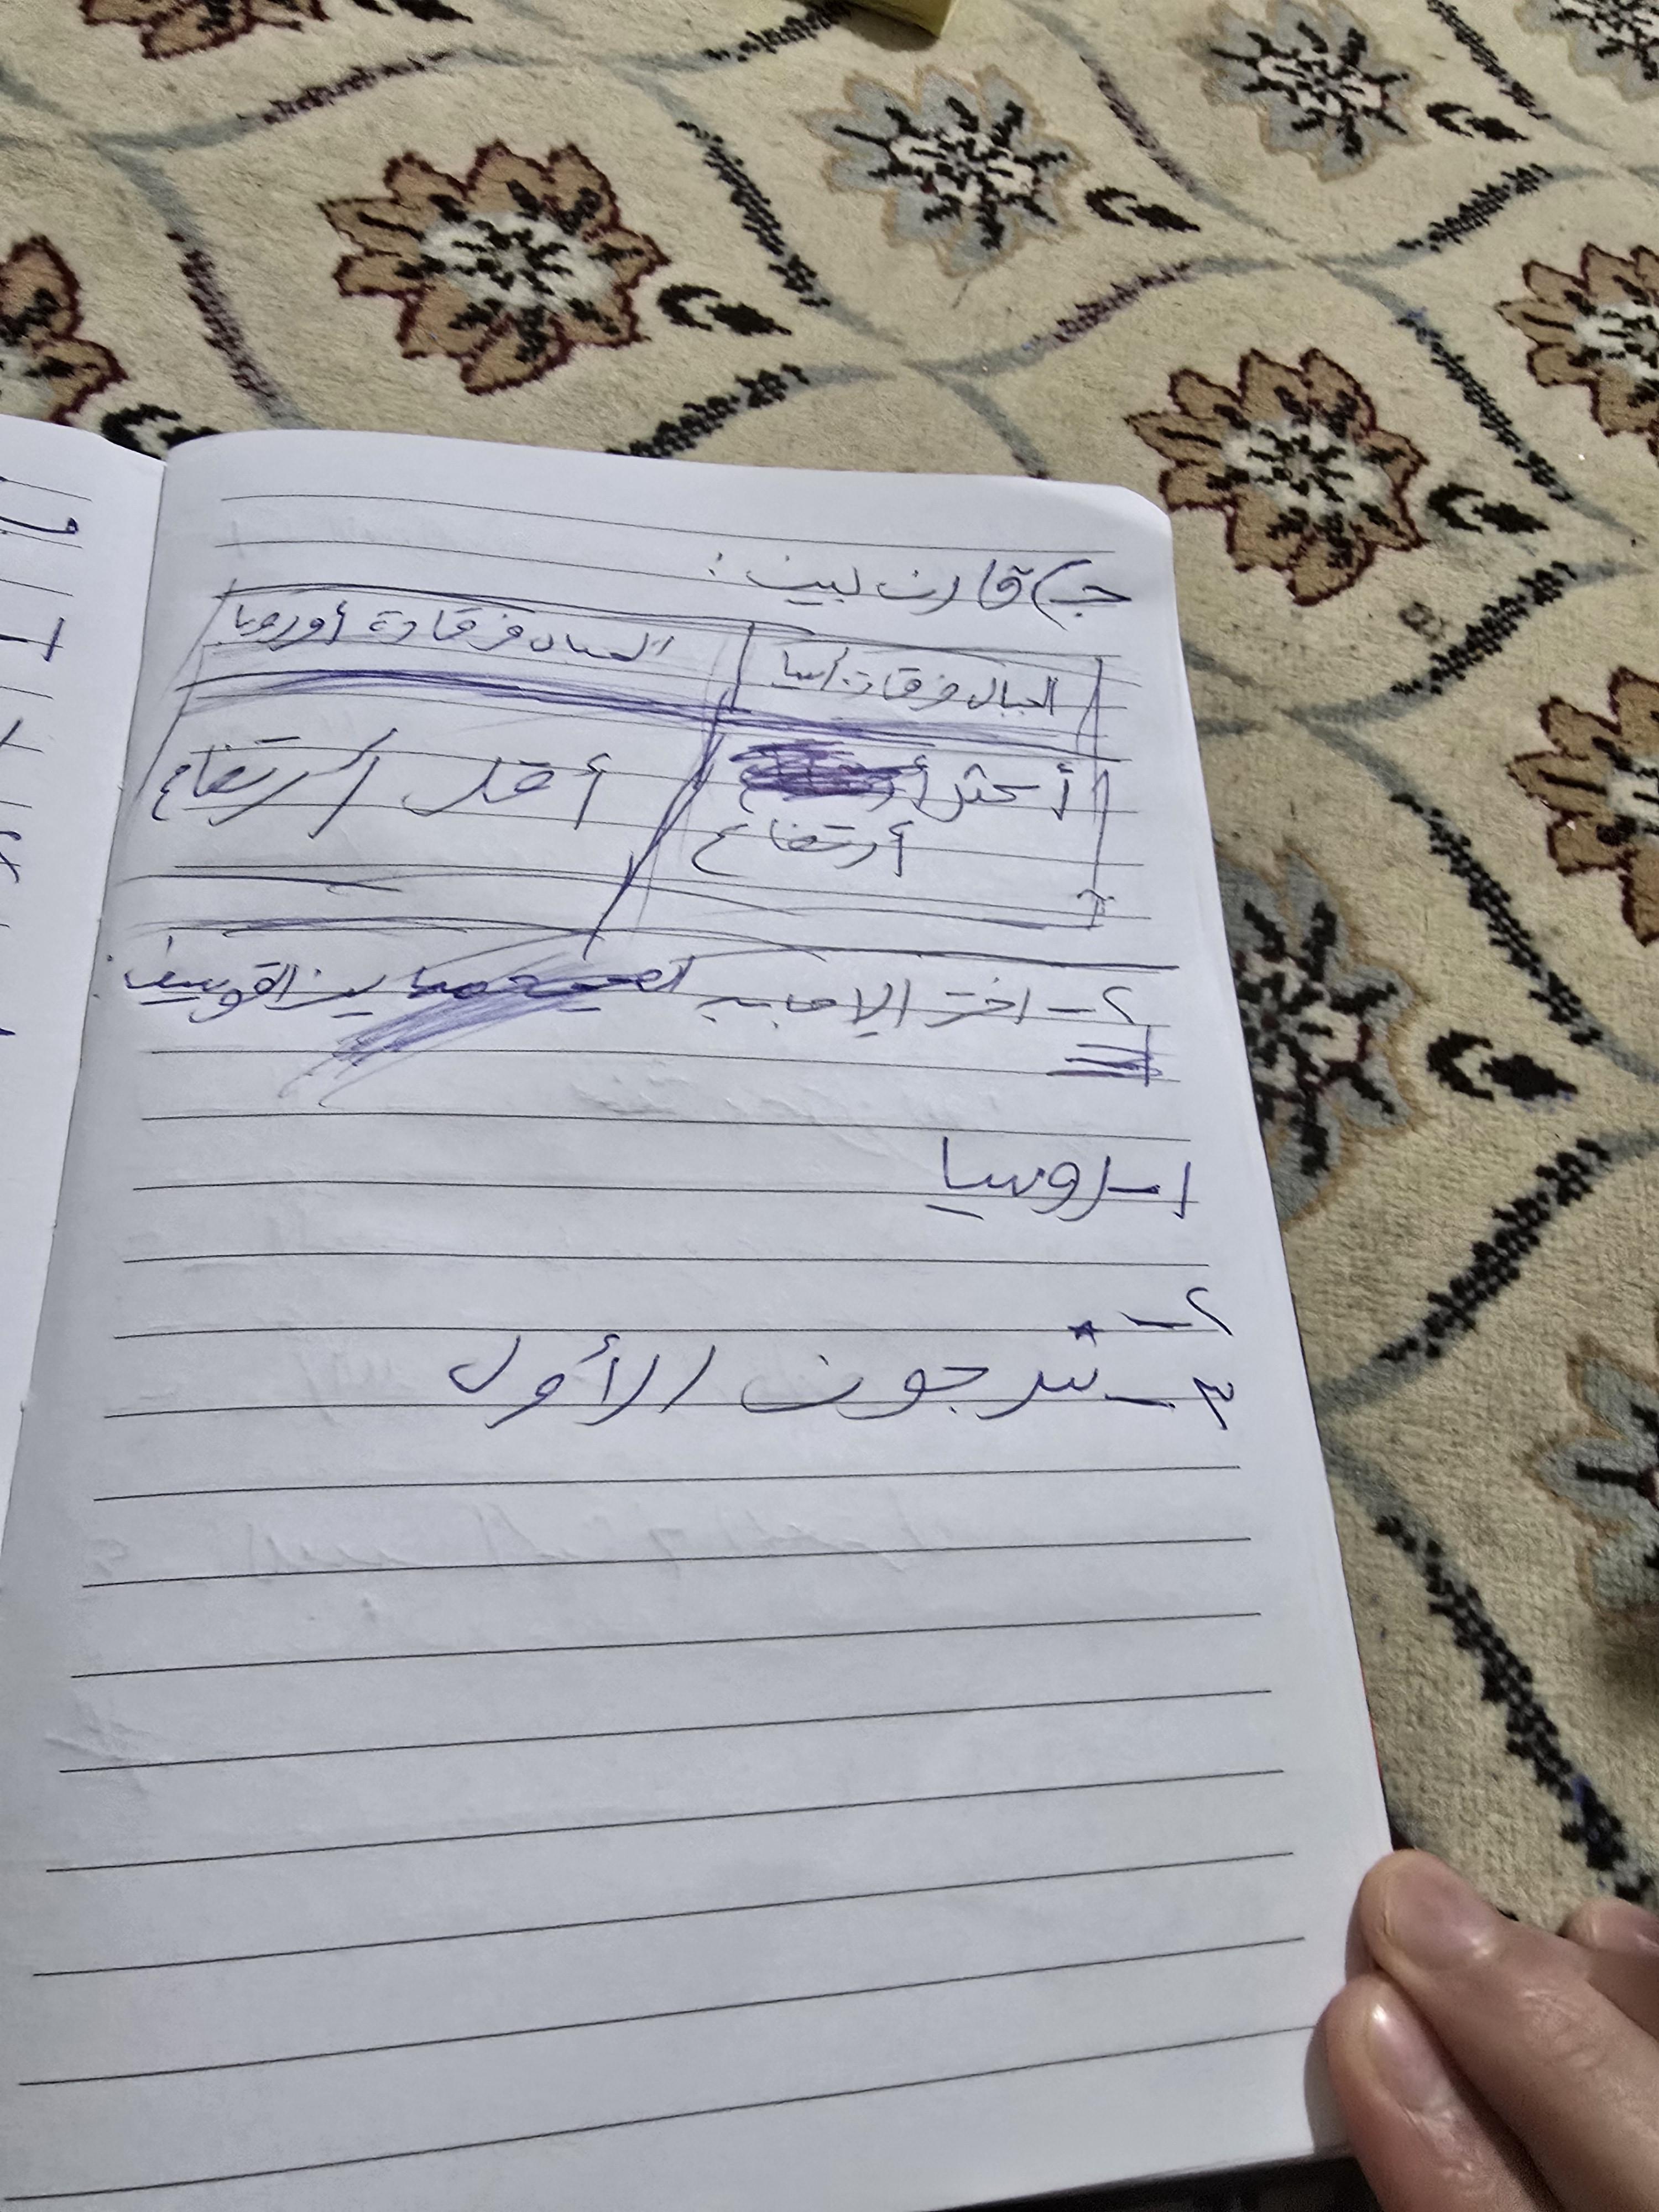 جـ) قارن بين :
الجبال في قارة آسيا
الجبال في قارة أوروبا
أكثر
أرتفاع
أقل ارتفاع
٢- اختر الإجابة الصحيحة مما بين القوسين :
١- روسيا
٢-
٣- سرجون الأول